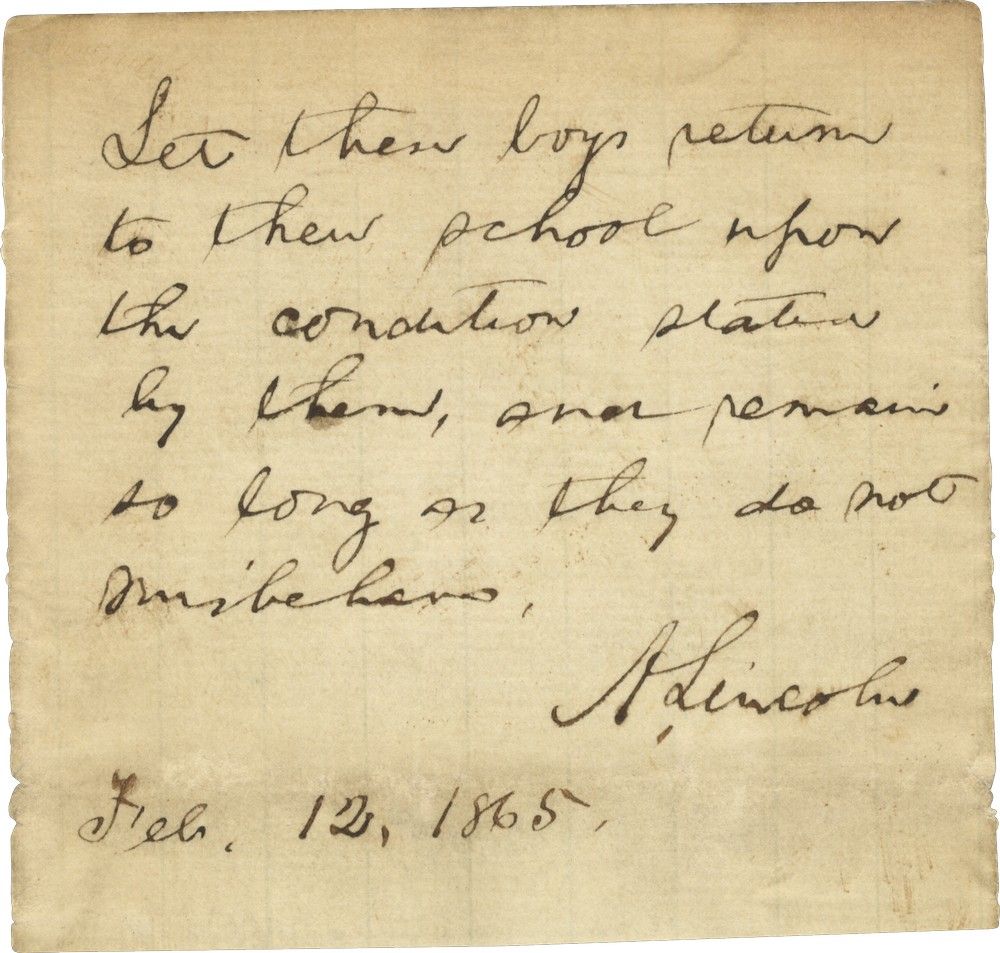 Let these boys return
to their school upon
the condition stated
by them, and remain
so long as they do not
misbehave.
A. Lincoln
Feb. 12, 1865.